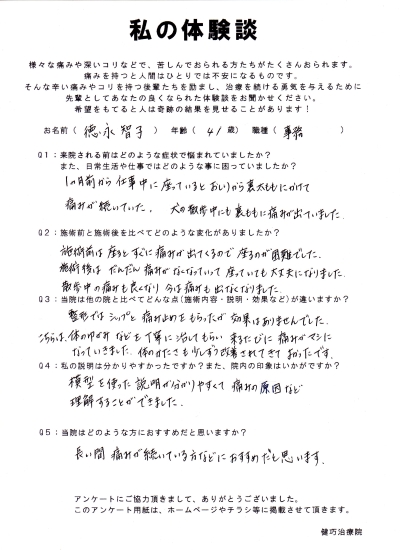 私の体験談
様々な痛みや深いコリなどで、苦しんでおられる方たちがたくさんおられます。
痛みを持つと人間はひとりでは不安になるものです。
そんな辛い痛みやコリを持つ後輩たちを励まし、治療を続ける勇気を与えるために
先輩としてあなたの良くなられた体験談をお聞かせください。
希望をもてると人は奇跡の結果を見せることがあります！
お名前（徳永智子）年齢（41歳）職種（事務）
Q1：来院される前はどのような症状で悩まれていましたか？
また、日常生活や仕事ではどのような事に困っていましたか？
1ヵ月前から仕事中に座っているとおしりから裏太ももにかけて
痛みが続いていた。犬の散歩中にも裏ももに痛みが出ていました。
Q2：施術前と施術後を比べてどのような変化がありましたか？
施術前は座るとすぐに痛みが出てくるので座るのが困難でした。
施術後はだんだん痛みがなくなっていって座っていても大丈夫になりました。
散歩中の痛みも良くなり今は痛みも出なくなりました。
Q3：当院は他の院と比べてどんな点（施術内容・説明・効果など）が違いますか？
整形ではシップと痛み止めをもらったが効果はありませんでした。
こちらは、体のゆがみなどを丁寧に治してもらい来るたびに痛みがマシに
なっていきました。体のかたさも少しずつ改善されてきてよかったです。
Q4：私の説明は分かりやすかったですか？また、院内の印象はいかがですか？
模型を使った説明が分かりやすくて痛みの原因など
理解することができました。
Q5：当院はどのような方におすすめだと思いますか？
長い間痛みが続いている方などにおすすめだと思います。
アンケートにご協力頂きまして、ありがとうございました。
このアンケート用紙は、ホームページやチラシ等に掲載させて頂きます。
健巧治療院